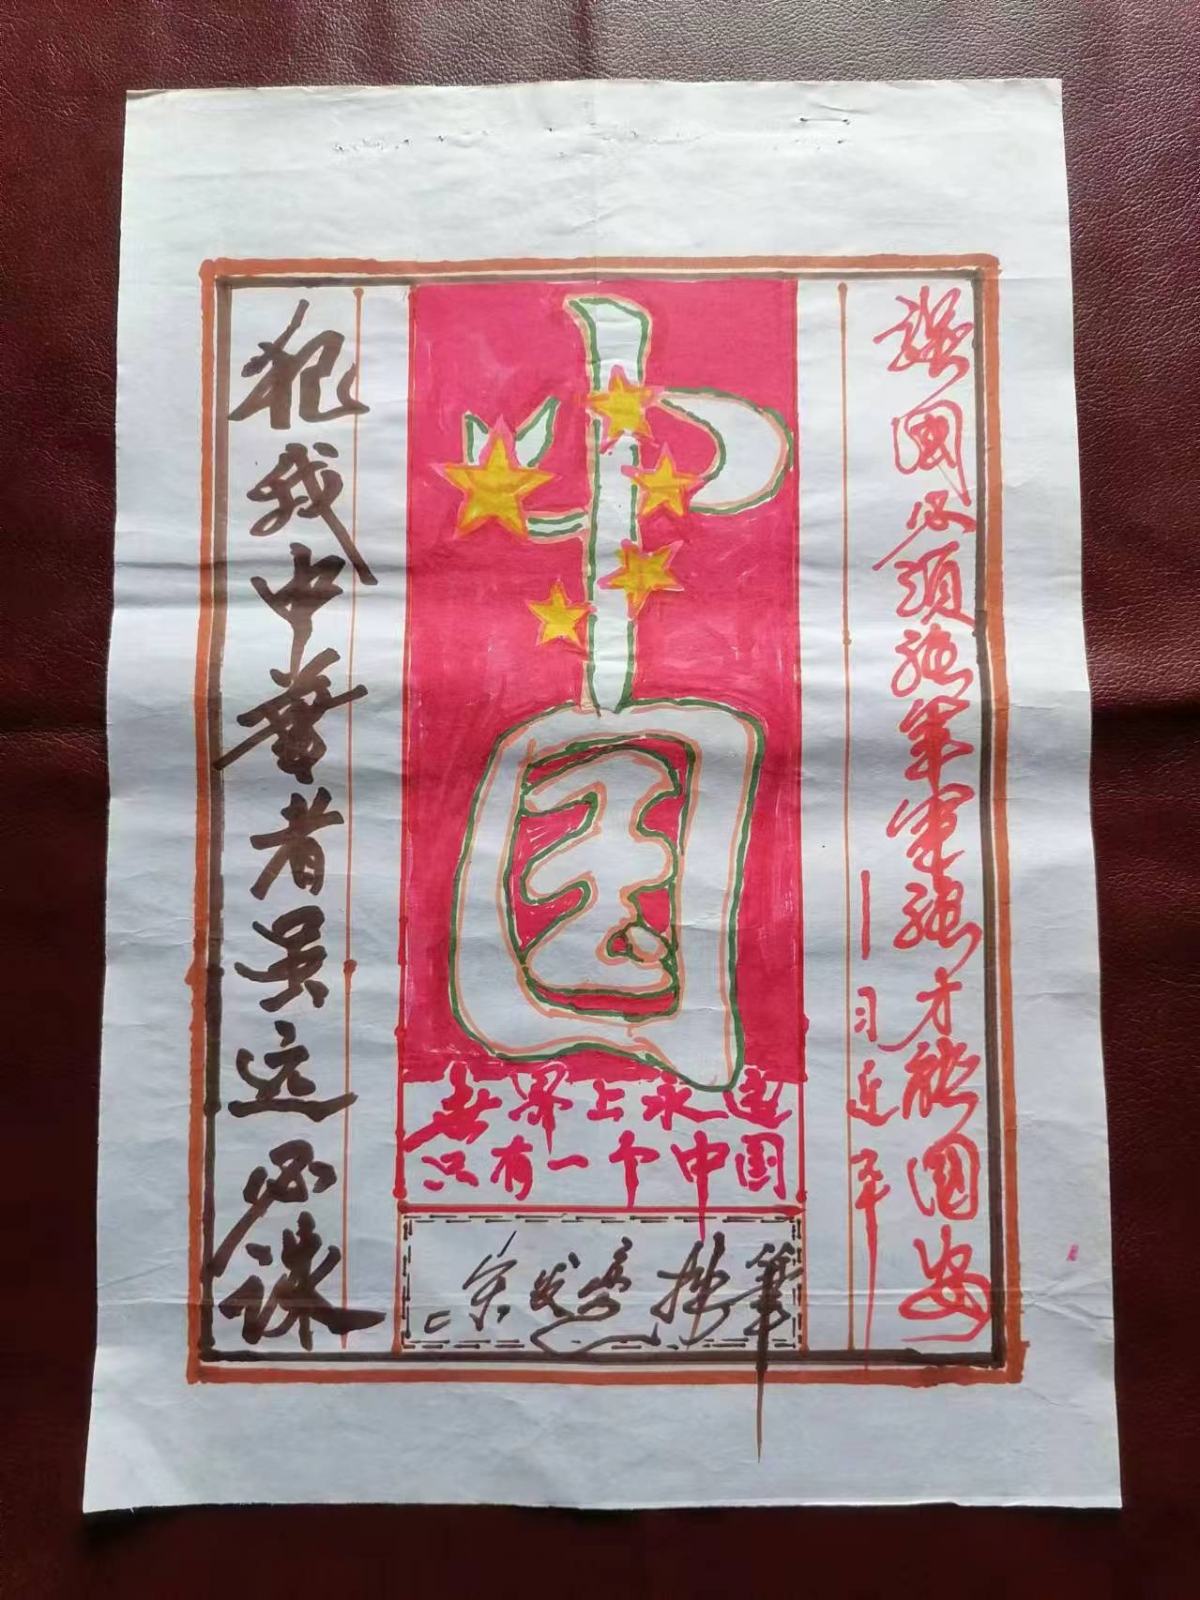 强国必须强军军强才能国安
—习近平
中国
世界上永远
只有一个中国
犯我中华者虽远必诛